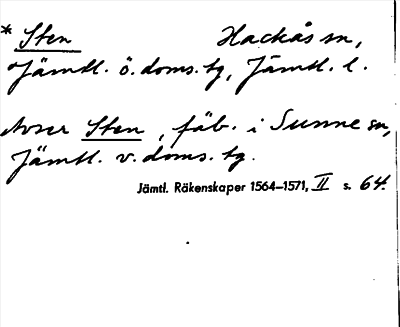 * Sten Hackås sn,
Jämtl. ö. doms. tg, Jämtl. l.
Avser Sten, fäb. i Sunne sn,
Jämtl. v. doms. tg.
Jämtl. Räkenskaper 1564–1571, II s. 64.